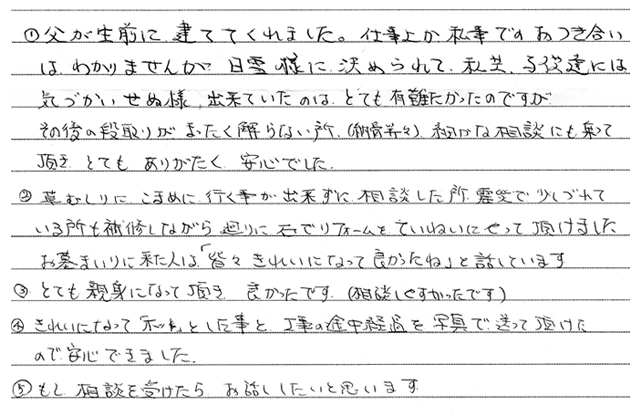 ①父が生前に建ててくれました。仕事上か私事でのおつき合い
はわかりませんが 日雲様に決められて、私共、子供達には
気づかいせぬ様、出来ていたのは、とても有難たかったのですが
その後の段取りがまったく解らない所、(納骨等々)、細かな相談にも乗って
頂き とても ありがたく、安心でした。
②草むしりに こまめに 行く事が出来ずに 相談した所 震災で少しづれて
いる所も補修しながら 廻りに石でリフォームをていねいにやって頂けました
お墓まいりに来た人は、「皆々 きれいになって良かったね」と話しています
③とても親身になって頂き 良かったです。(相談しやすかったです)
④きれいになって「ホッ」とした事と、工事の途中経過を写真で送って頂けた
ので安心できました。
⑤もし 相談を受けたら お話ししたいと思います